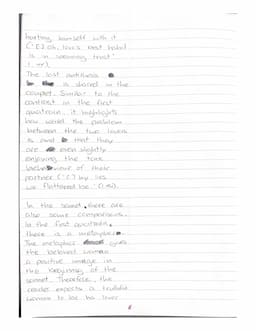 hurting himself with it
("[E] oh, love's best habit
is in seeming trust"
The last antithesis
is shared in the
couplet. Similar to the
contrast in the first
quatrain it highlights
how weird the problem
between the two lovers
is and that they
are even slightly
enjoying the
behaviour of their
partner by lies
we flattered be."
In the sonnet, there are
also some comparisons.
In the first quatrain,
there is a metaphor.
The metaphor gives
the beloved woman
a positive image in
the beginning of the
sonnet. Therefore, the
reader expects a truthful
woman to be his lover